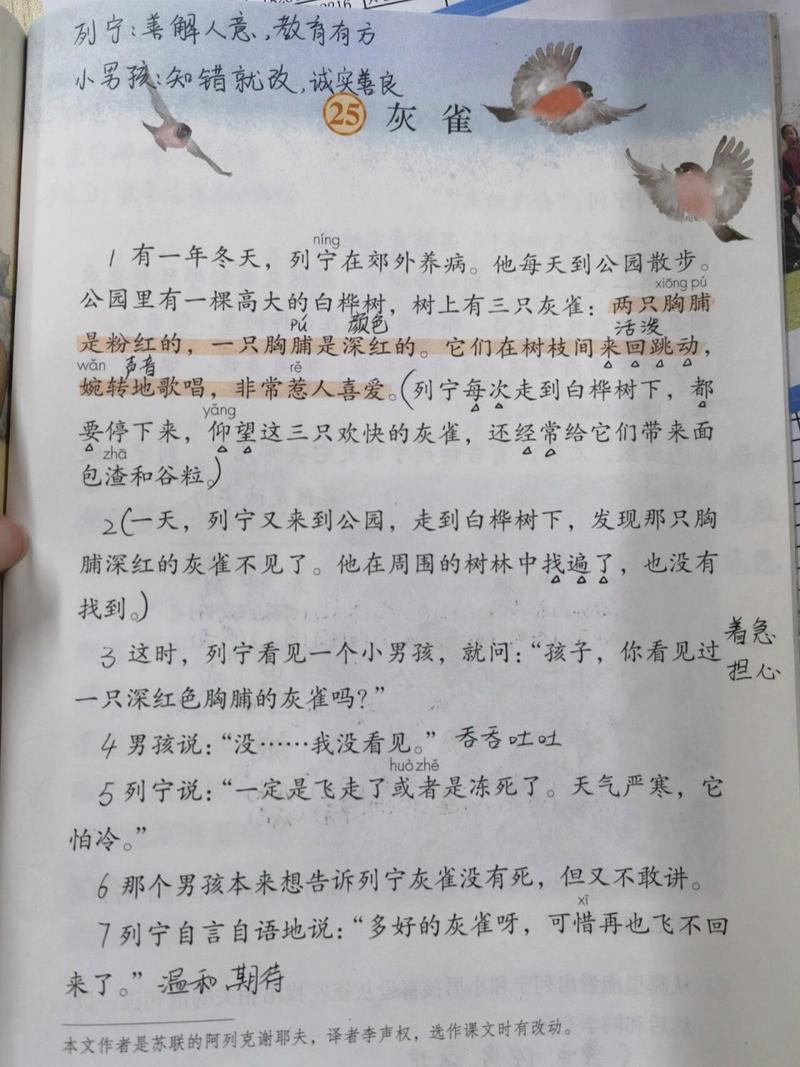 列宁：善解人意，教育有方
小男孩：知错就改，诚实善良
25 灰雀
níng
1 有一年冬天，列宁在郊外养病。他每天到公园散步。
xiōng pú
公园里有一棵高大的白桦树，树上有三只灰雀：两只胸脯
pú 颜色 活泼
是粉红的，一只胸脯是深红的。它们在树枝间来回跳动，
wǎn 声音 rě
婉转地歌唱，非常惹人喜爱。（列宁每次走到白桦树下，都
yǎng
要停下来，仰望这三只欢快的灰雀，还经常给它们带来面
zhā
包渣和谷粒。）
2（一天，列宁又来到公园，走到白桦树下，发现那只胸
脯深红的灰雀不见了。他在周围的树林中找遍了，也没有
找到。）
3 这时，列宁看见一个小男孩，就问：“孩子，你看见过
着急
担心
一只深红色胸脯的灰雀吗？”
4 男孩说：“没……我没看见。” 吞吞吐吐
huò zhě
5 列宁说：“一定是飞走了或者是冻死了。天气严寒，它
怕冷。”
6 那个男孩本来想告诉列宁灰雀没有死，但又不敢讲。
xī
7 列宁自言自语地说：“多好的灰雀呀，可惜再也飞不回
来了。” 温和 期待
本文作者是苏联的阿列克谢耶夫，译者李声权，选作课文时有改动。